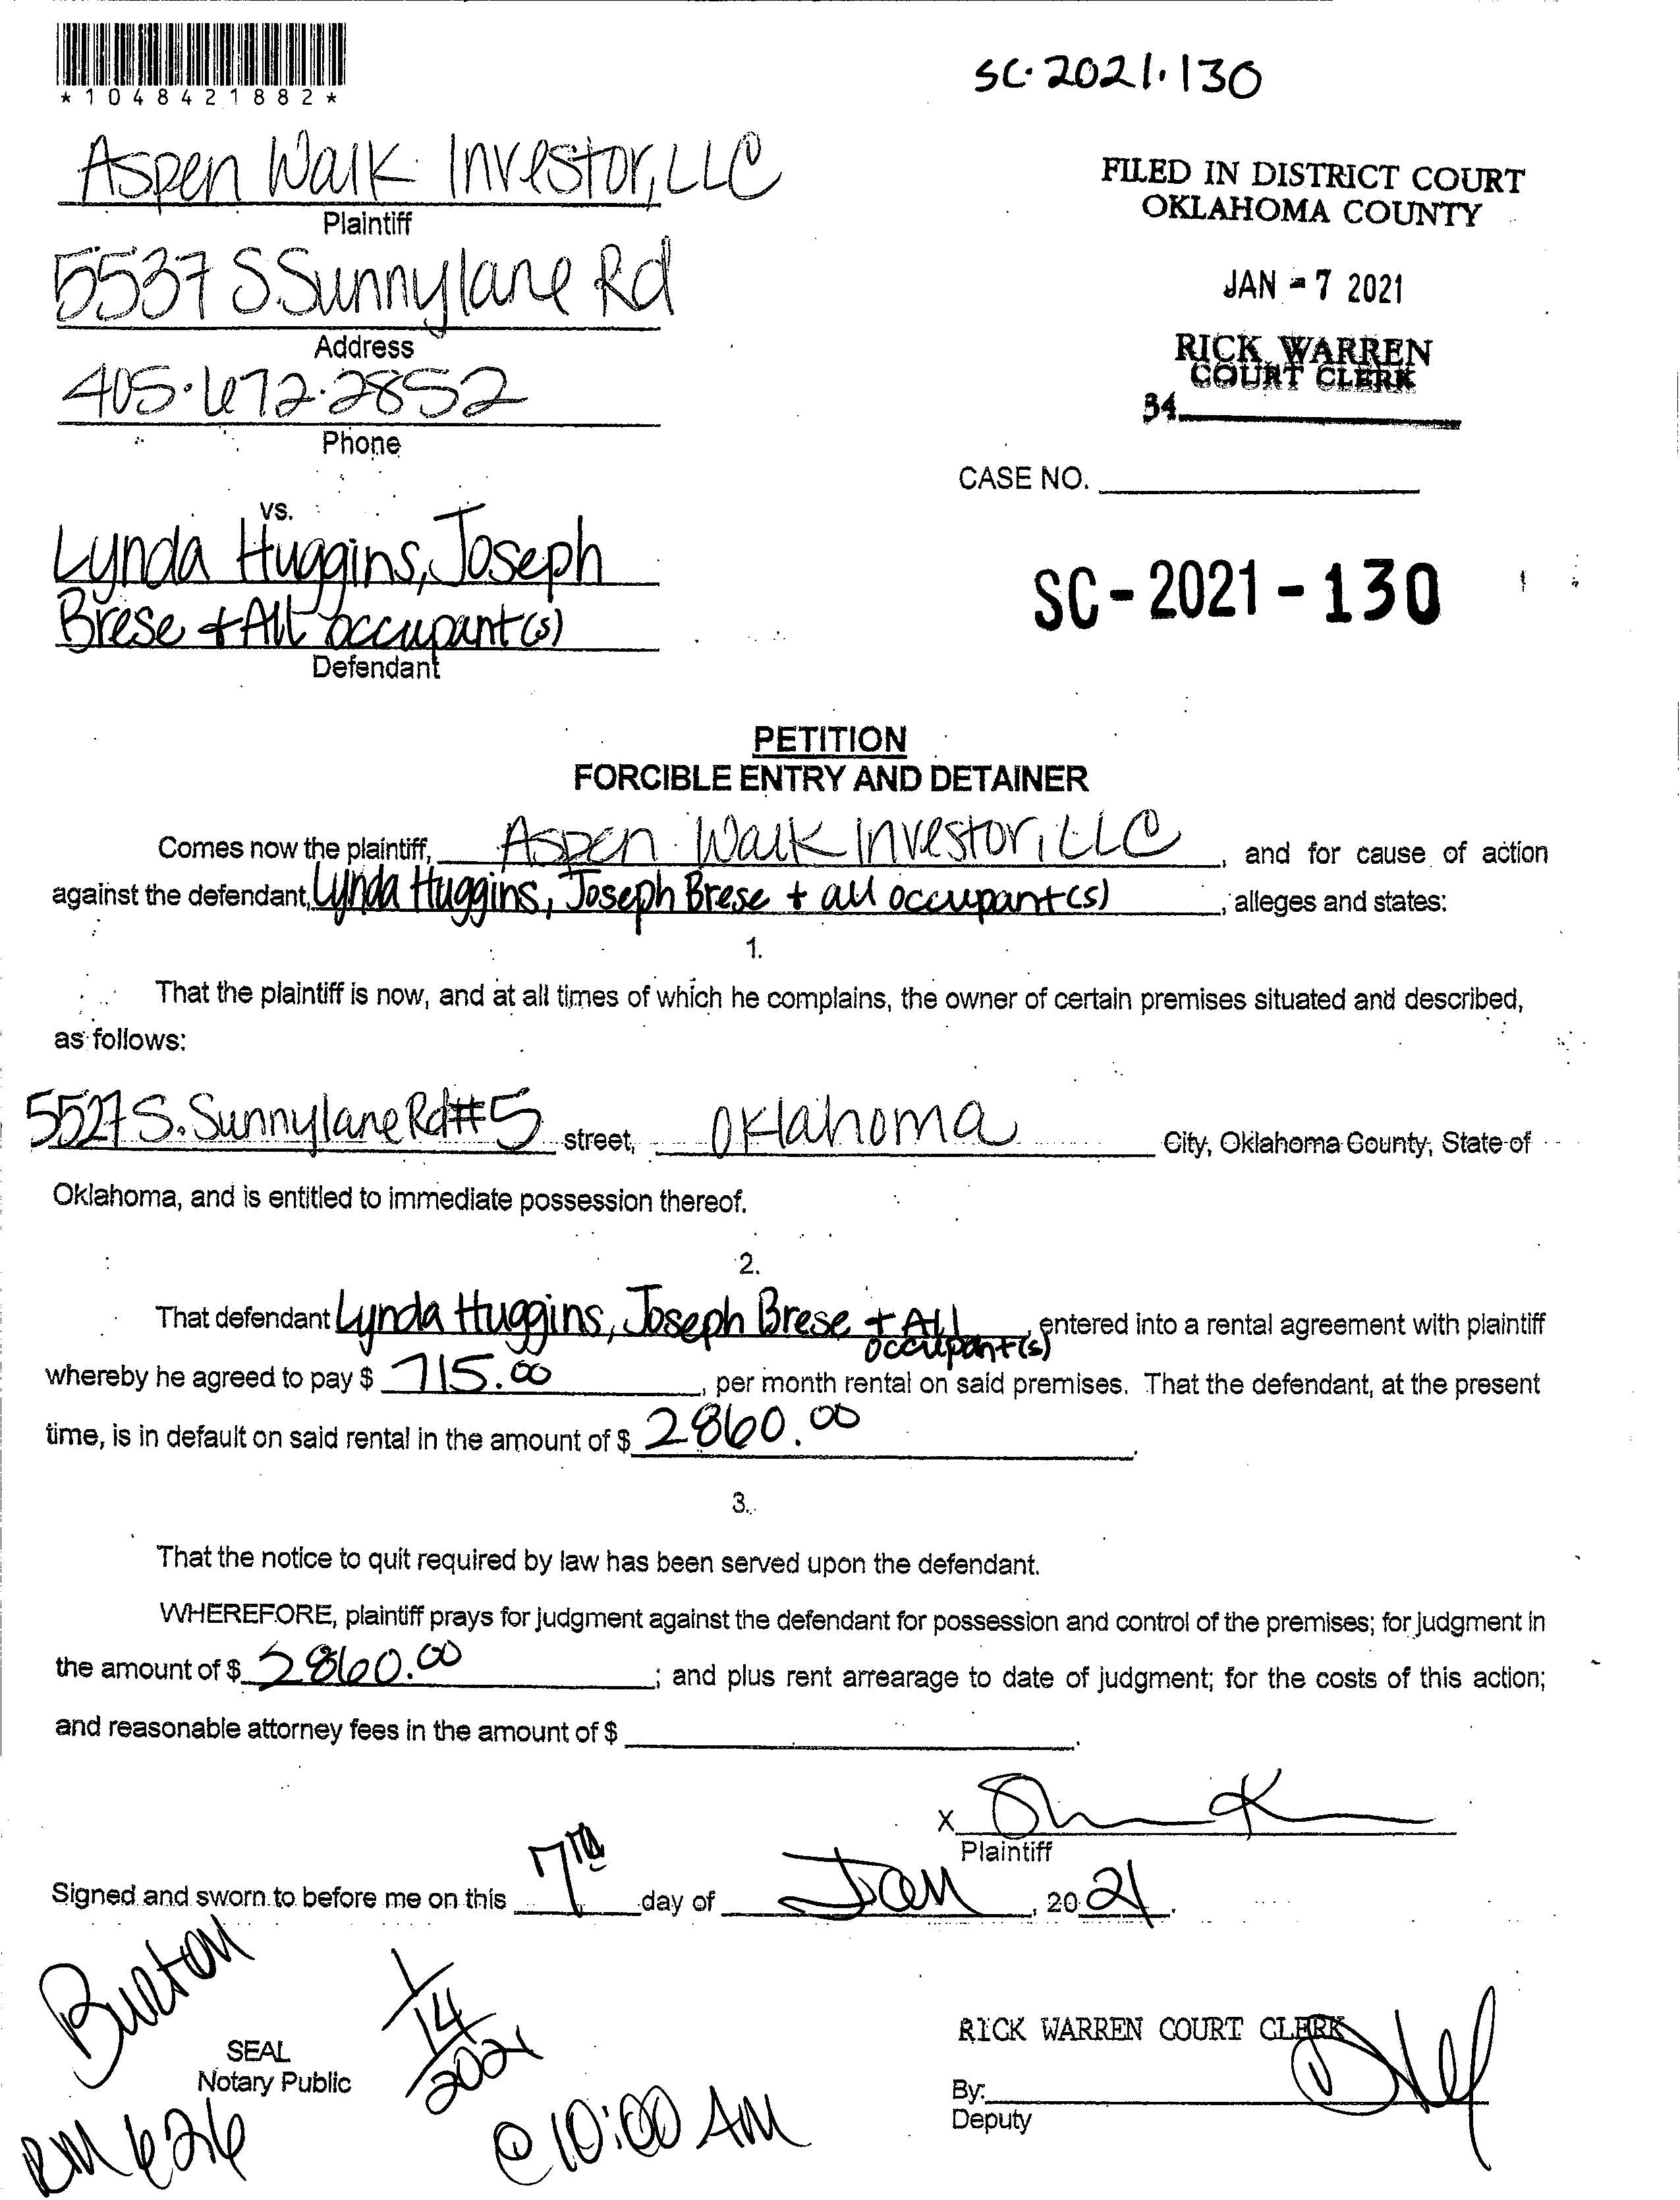 *1048421882*
SC·2021·130
Aspen Walk Investor, LLC
Plaintiff
5537 S Sunnylane Rd
Address
405·672·2852
Phone
FILED IN DISTRICT COURT
OKLAHOMA COUNTY
JAN - 7 2021
RICK WARREN
COURT CLERK
34
CASE NO.
vs.
Lynda Huggins, Joseph
Brese + All occupant(s)
Defendant
SC - 2021 - 130
PETITION
FORCIBLE ENTRY AND DETAINER
Comes now the plaintiff, Aspen Walk Investor, LLC, and for cause of action
against the defendant, Lynda Huggins, Joseph Brese + all occupant(s), alleges and states:
1.
That the plaintiff is now, and at all times of which he complains, the owner of certain premises situated and described,
as follows:
5527 S. Sunnylane Rd #5 street, Oklahoma City, Oklahoma County, State of
Oklahoma, and is entitled to immediate possession thereof.
2.
That defendant Lynda Huggins, Joseph Brese + All occupant(s), entered into a rental agreement with plaintiff
whereby he agreed to pay $ 715.00, per month rental on said premises. That the defendant, at the present
time, is in default on said rental in the amount of $ 2860.00.
3.
That the notice to quit required by law has been served upon the defendant.
WHEREFORE, plaintiff prays for judgment against the defendant for possession and control of the premises; for judgment in
the amount of $ 2860.00; and plus rent arrearage to date of judgment; for the costs of this action;
and reasonable attorney fees in the amount of $
X
Plaintiff
Signed and sworn to before me on this 7th day of Jan, 2021.
Burton
1/14/2021
SEAL
Notary Public
RM 626
@ 10:00 AM
RICK WARREN COURT CLERK
By:
Deputy